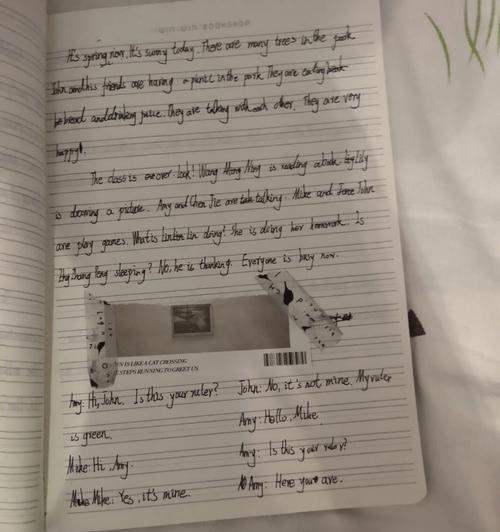 WIN-WIN BOOKSHOP
It's spring now. It's sunny today. There are many trees in the park
John and his friends are having a picnic in the park. They are eating
bread and drinking juice. They are talking with each other. They are very
happy!
The class is over. look! Wang Ming Ming is reading a book. Lily
is drawing a picture. Amy and Chen Jie are talking. Mike and John
are play games. What is Lin Lin doing? She is doing her homework. Is
Zhang Peng sleeping? No, he is thinking. Everyone is busy now.
N IS LIKE A CAT CROSSING
STEPS RUNNING TO GREET US.
Amy: Hi, John. Is this your ruler?
is green.
Mike: Hi, Amy.
Mike: Yes, it's mine.
John: No, it's not mine. My ruler
Amy: Hello, Mike.
Amy: Is this your ruler?
Amy: Here you are.